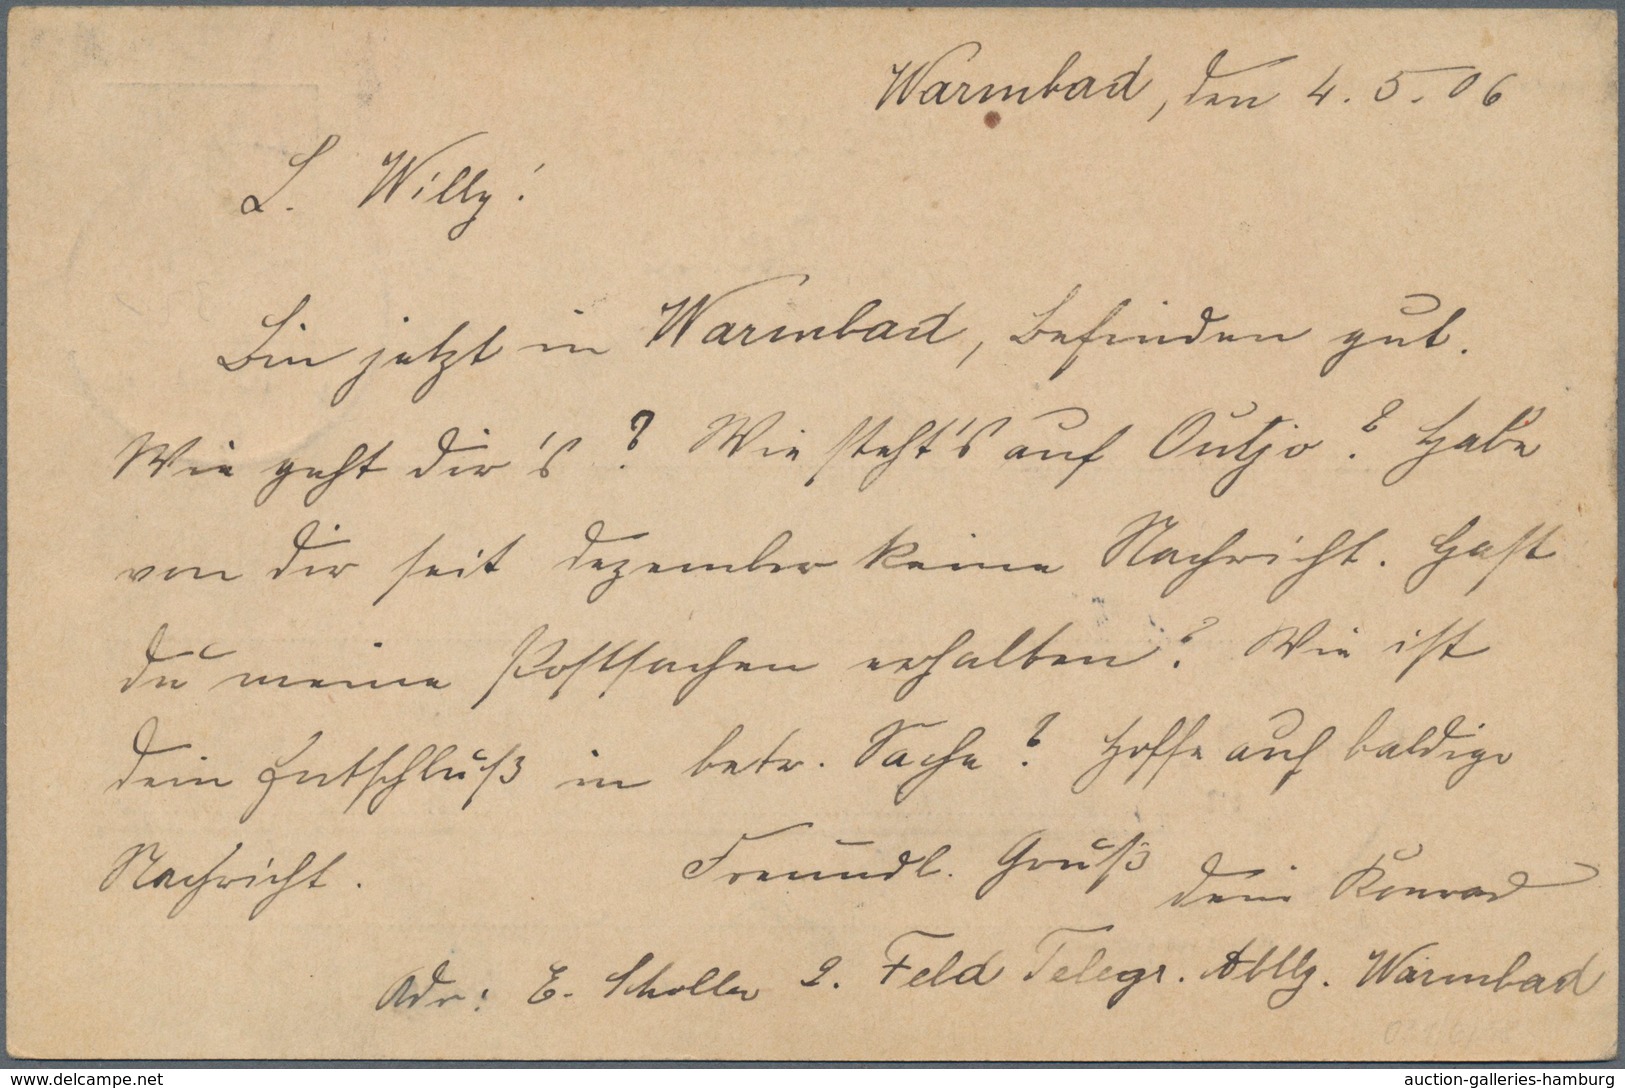 Warmbad, den 4. 5. 06
L. Willy!
Bin jetzt in Warmbad, Befinden gut.
Wie geht dir's? Wie steht's auf Outjo? Habe
von dir seit Dezember keine Nachricht. Hast
du meine Postsachen erhalten? Wie ist
dein Entschluß in betr. Sache? Hoffe auf baldige
Nachricht. Freundl. Gruß
dein Konrad
Adr: E. Scholler 2. Feld Telegr. Abtlg. Warmbad
www.delcampe.net
auction-galleries-hamburg